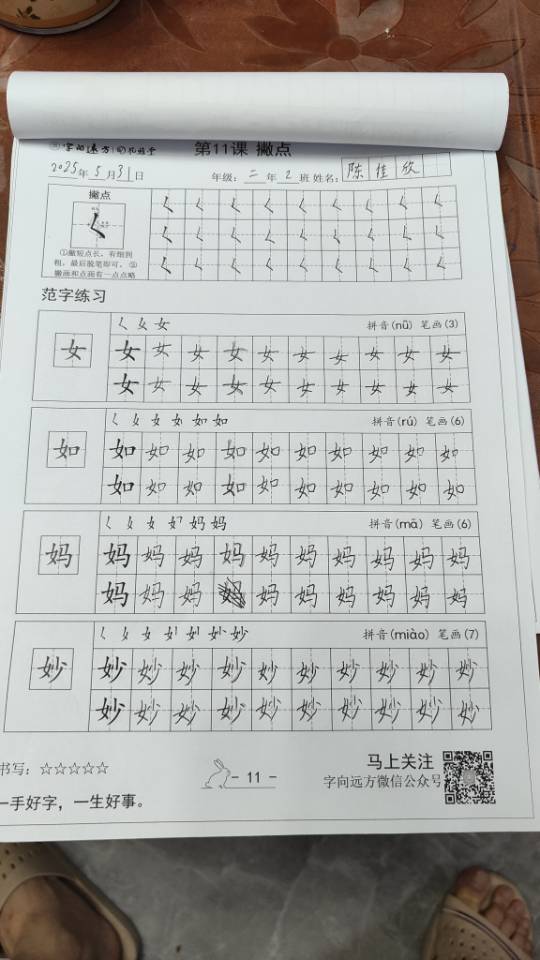 第11课 撇点
2025年5月31日 年级:二年2班 姓名:陈佳欣
撇点
①撇短点长,有细到
粗,最后驻笔即可,②
撇画和点画有一点点略
く く く く く く く く く
く く く く く く く く く
く く く く く く く く く
范字练习
女 拼音(nǚ) 笔画(3)
女
女 女 女 女 女 女 女 女 女 女
女 女 女 女 女 女 女 女 女 女
女 女 如 如 拼音(rú) 笔画(6)
如
如 如 如 如 如 如 如 如 如 如
如 如 如 如 如 如 如 如 如 如
女 妈 妈 拼音(mā) 笔画(6)
妈
妈 妈 妈 妈 妈 妈 妈 妈 妈 妈
妈 妈 妈 妈 妈 妈 妈 妈 妈
女 妙 拼音(miào) 笔画(7)
妙
妙 妙 妙 妙 妙 妙 妙 妙 妙 妙
妙 妙 妙 妙 妙 妙 妙 妙 妙 妙
书写:☆☆☆☆☆
- 11 -
马上关注
字向远方微信公众号
一手好字,一生好事。